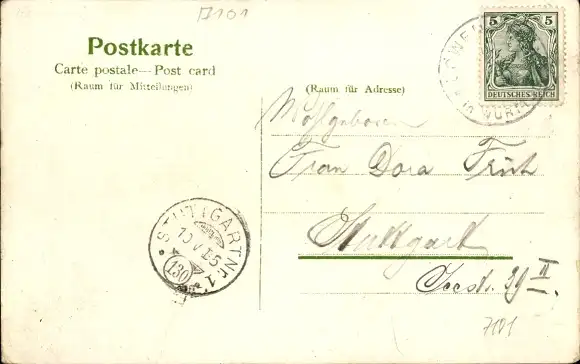 7101
Postkarte
Carte postale—Post card
(Raum für Mitteilungen)
(Raum für Adresse)
5 5
DEUTSCHES REICH
WÜRTT
Wohlgeboren
Frau Dora Früh
Stuttgart
Seestr. 39 II.
STUTTGART NR. 1
10 V 05
130
7101